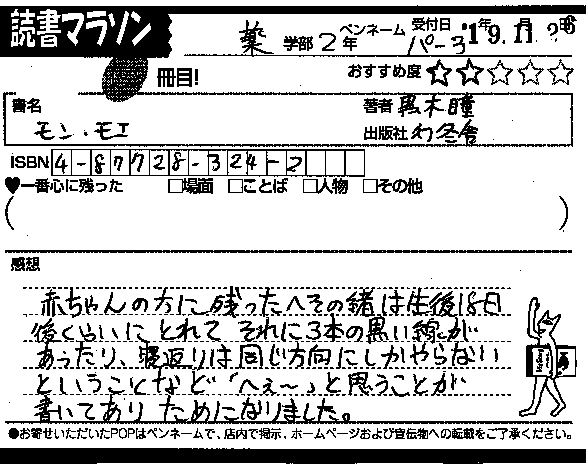 読書マラソン
薬 学部 2 年 ペンネーム パーコ 受付日 '19.11.26
冊目! おすすめ度 ☆☆☆☆☆
書名 モン・モエ
著者 黒木瞳
出版社 幻冬舎
ISBN 4-87728-324-2
♥一番心に残った □場面 □ことば □人物 □その他
( )
感想
赤ちゃんの方に残ったへその緒は生後18日
後くらいにとれて それに3本の黒い線が
あったり、寝返りは同じ方向にしかやらない
ということなど「へぇ〜」と思うことが
書いてあり ためになりました。
●お寄せいただいたPOPはペンネームで、店内で掲示、ホームページおよび宣伝物への転載をご了承ください。